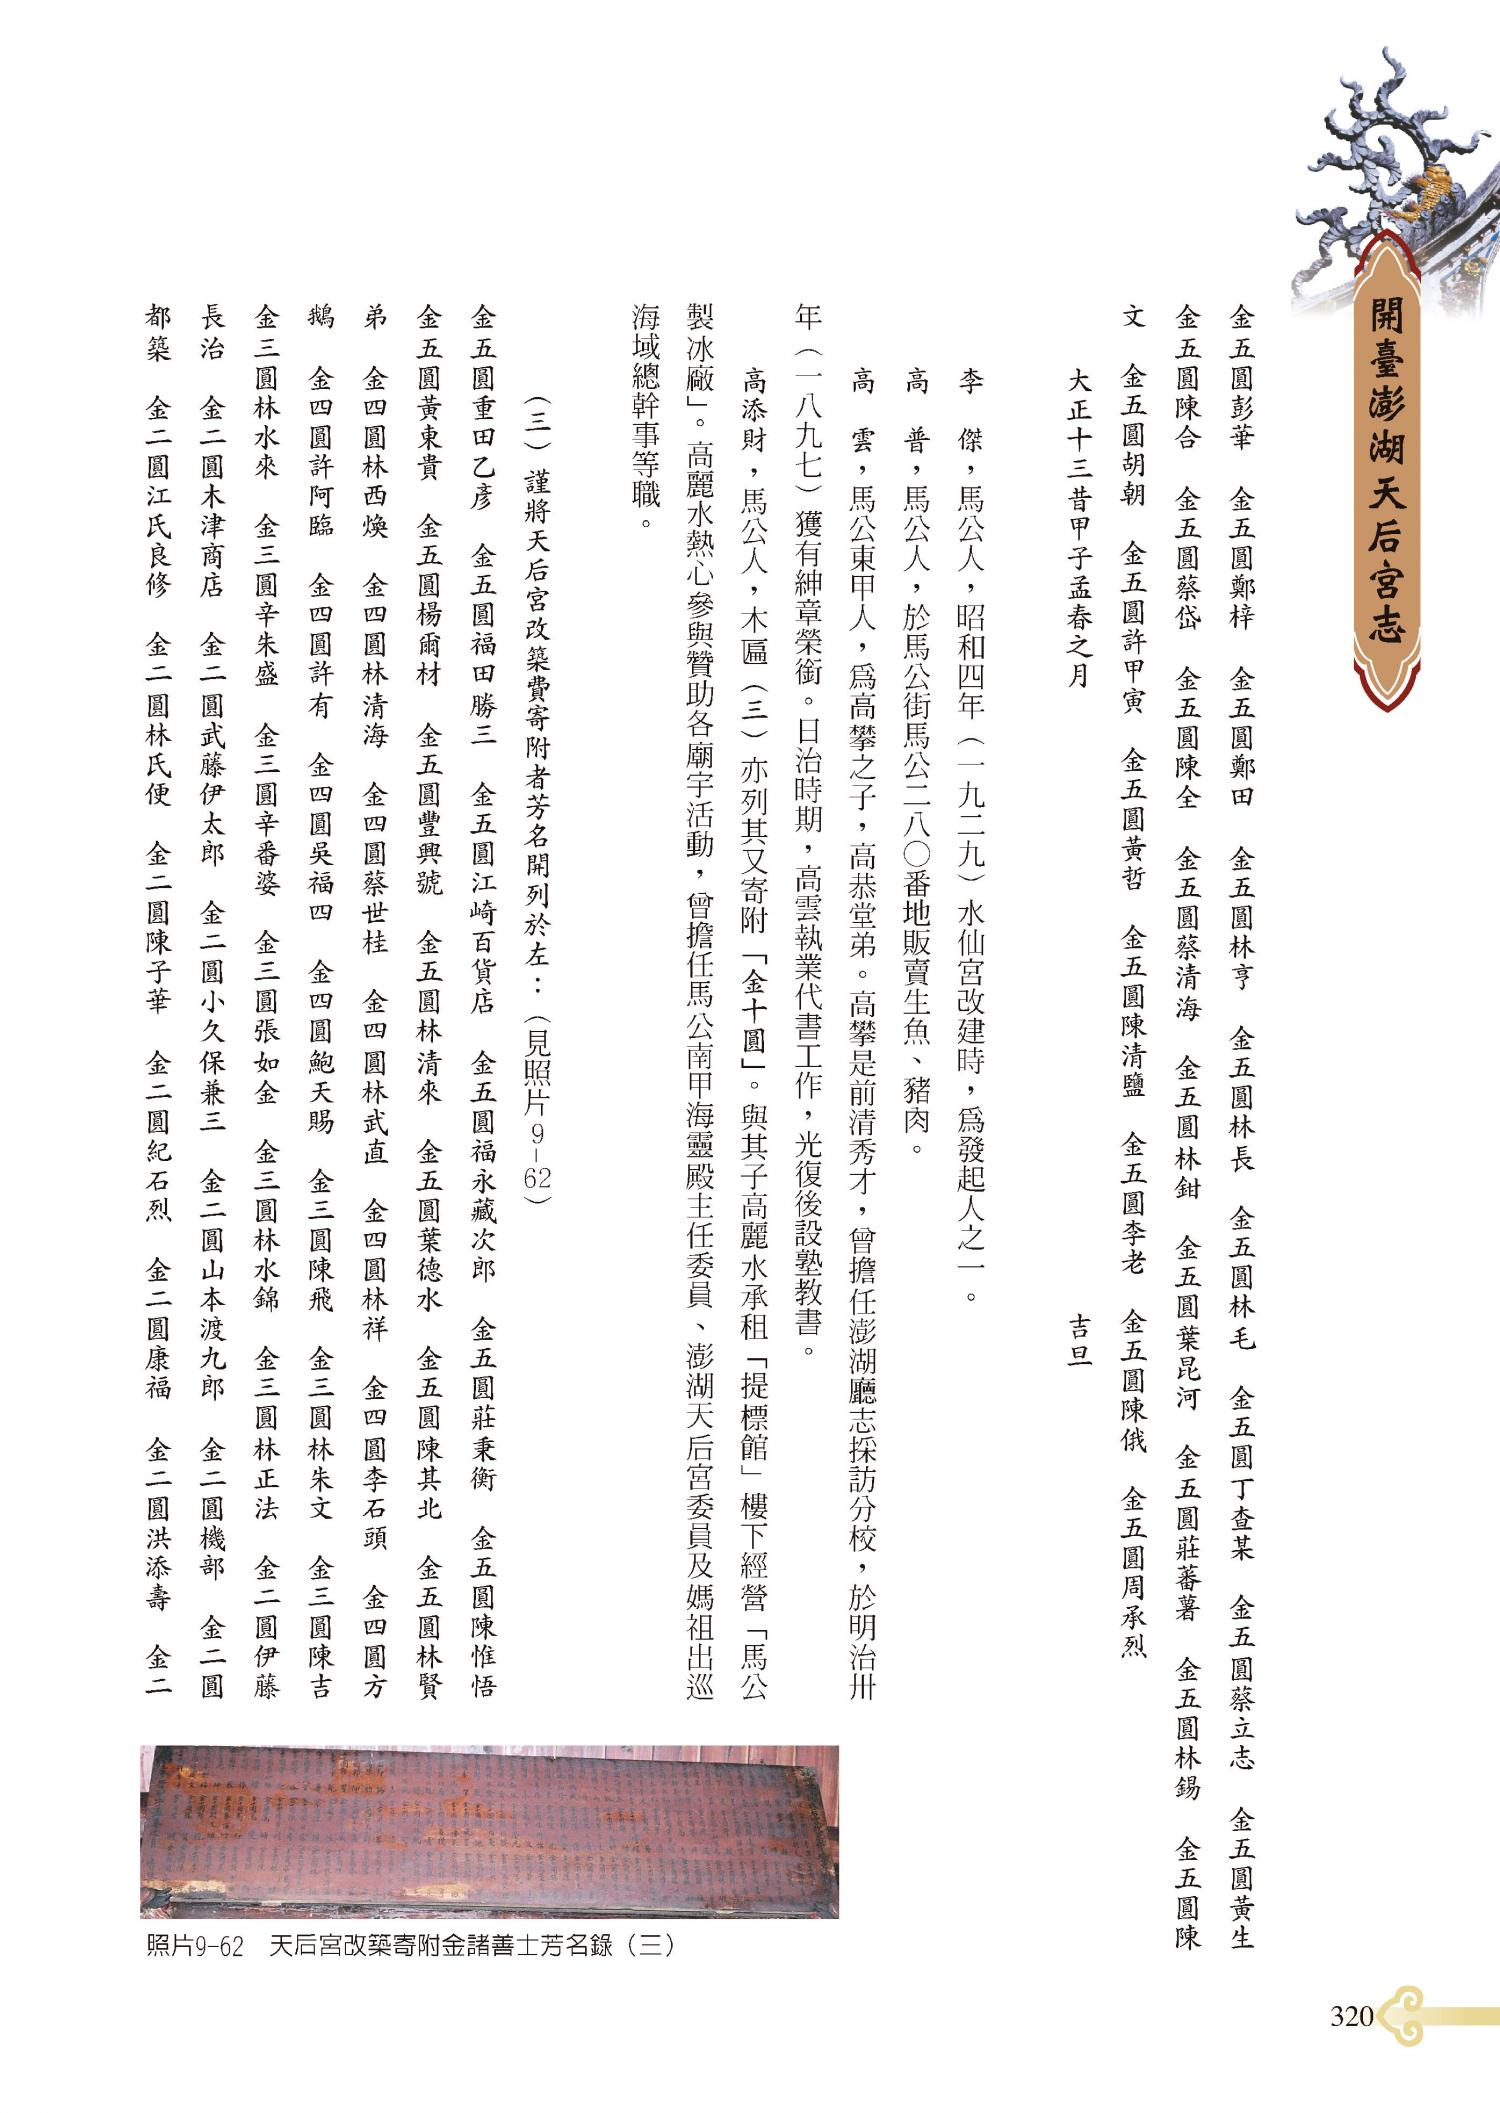 開臺澎湖天后宮志
金五圓彭華　金五圓鄭梓　金五圓鄭田　金五圓林亨　金五圓林長　金五圓林毛　金五圓丁查某　金五圓蔡立志　金五圓黃生
金五圓陳合　金五圓蔡岱　金五圓陳全　金五圓蔡清海　金五圓林鉗　金五圓葉昆河　金五圓莊蕃薯　金五圓林錫　金五圓陳
文　金五圓胡朝　金五圓許甲寅　金五圓黃哲　金五圓陳清鹽　金五圓李老　金五圓陳俄　金五圓周承烈
大正十三昔甲子孟春之月　吉旦
李　傑，馬公人，昭和四年（一九二九）水仙宮改建時，為發起人之一。
高　普，馬公人，於馬公街馬公二八〇番地販賣生魚、豬肉。
高　雲，馬公東甲人，為高攀之子，高恭堂弟。高攀是前清秀才，曾擔任澎湖廳志採訪分校，於明治卅
年（一八九七）獲有紳章榮銜。日治時期，高雲執業代書工作，光復後設塾教書。
高添財，馬公人，木匾（三）亦列其又寄附「金十圓」。與其子高麗水承租「提標館」樓下經營「馬公
製冰廠」。高麗水熱心參與贊助各廟宇活動，曾擔任馬公南甲海靈殿主任委員、澎湖天后宮委員及媽祖出巡
海域總幹事等職。
（三）謹將天后宮改築費寄附者芳名開列於左：（見照片9–62）
金五圓重田乙彥　金五圓福田勝三　金五圓江崎百貨店　金五圓福永藏次郎　金五圓莊秉衡　金五圓陳惟悟
金五圓黃東貴　金五圓楊爾材　金五圓豐興號　金五圓林清來　金五圓葉德水　金五圓陳其北　金五圓林賢
弟　金四圓林西煥　金四圓林清海　金四圓蔡世桂　金四圓林武直　金四圓林祥　金四圓李石頭　金四圓方
鵝　金四圓許阿臨　金四圓許有　金四圓吳福四　金四圓鮑天賜　金三圓陳飛　金三圓林朱文　金三圓陳吉
金三圓林水來　金三圓辛朱盛　金三圓辛番婆　金三圓張如金　金三圓林水錦　金三圓林正法　金二圓伊藤
長治　金二圓木津商店　金二圓武藤伊太郎　金二圓小久保兼三　金二圓山本渡九郎　金二圓機部　金二圓
都築　金二圓江氏良修　金二圓林氏便　金二圓陳子華　金二圓紀石烈　金二圓康福　金二圓洪添壽　金二
照片9-62　天后宮改築寄附金諸善士芳名錄（三）
320